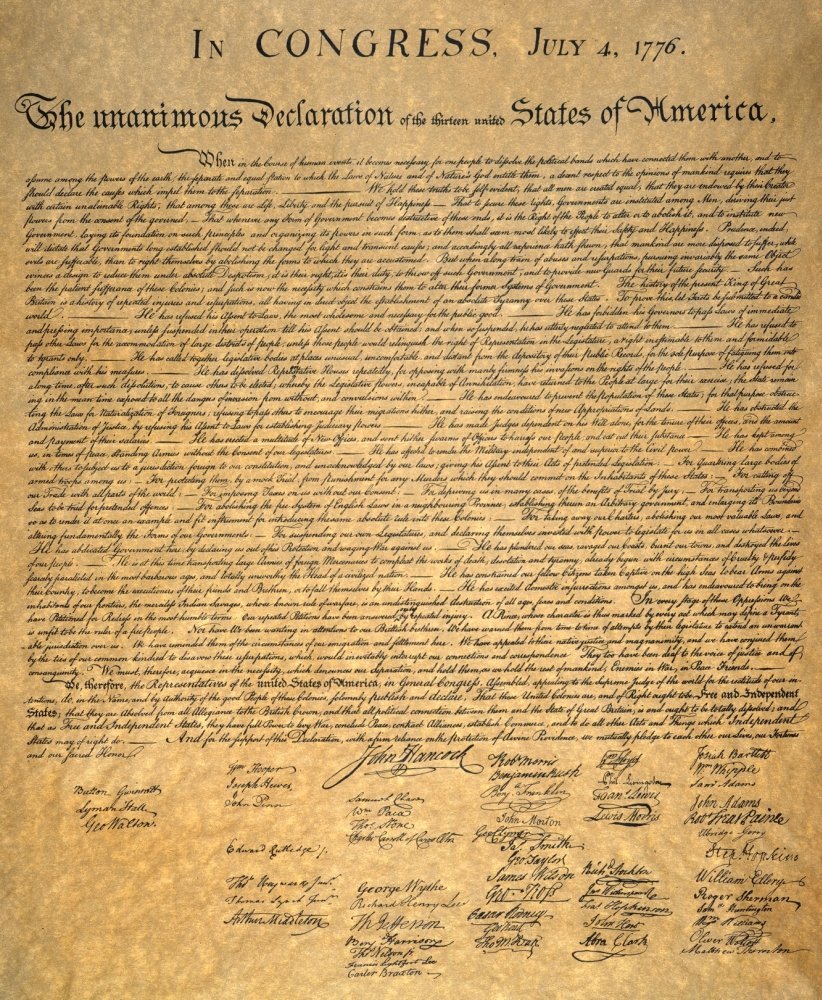 In CONGRESS, July 4, 1776.
The unanimous Declaration of the thirteen united States of America,
When in the Course of human events, it becomes necessary for one people to dissolve the political bands which have connected them with another, and to
assume among the powers of the earth, the separate and equal station to which the Laws of Nature and of Nature's God entitle them, a decent respect to the opinions of mankind requires that they
should declare the causes which impel them to the separation. — We hold these truths to be self-evident, that all men are created equal, that they are endowed by their Creator
with certain unalienable Rights, that among these are Life, Liberty and the pursuit of Happiness. — That to secure these rights, Governments are instituted among Men, deriving their just
powers from the consent of the governed, — That whenever any Form of Government becomes destructive of these ends, it is the Right of the People to alter or to abolish it, and to institute new
Government, laying its foundation on such principles and organizing its powers in such form, as to them shall seem most likely to effect their Safety and Happiness. Prudence, indeed,
will dictate that Governments long established should not be changed for light and transient causes; and accordingly all experience hath shewn, that mankind are more disposed to suffer, while
evils are sufferable, than to right themselves by abolishing the forms to which they are accustomed. But when a long train of abuses and usurpations, pursuing invariably the same Object
evinces a design to reduce them under absolute Despotism, it is their right, it is their duty, to throw off such Government, and to provide new Guards for their future security. — Such has
been the patient sufferance of these Colonies; and such is now the necessity which constrains them to alter their former Systems of Government. The history of the present King of Great
Britain is a history of repeated injuries and usurpations, all having in direct object the establishment of an absolute Tyranny over these States. To prove this, let Facts be submitted to a candid
world. — He has refused his Assent to Laws, the most wholesome and necessary for the public good. — He has forbidden his Governors to pass Laws of immediate
and pressing importance, unless suspended in their operation till his Assent should be obtained; and when so suspended, he has utterly neglected to attend to them. — He has refused to
pass other Laws for the accommodation of large districts of people, unless those people would relinquish the right of Representation in the Legislature, a right inestimable to them and formidable
to tyrants only. — He has called together legislative bodies at places unusual, uncomfortable, and distant from the depository of their public Records, for the sole purpose of fatiguing them into
compliance with his measures. — He has dissolved Representative Houses repeatedly, for opposing with manly firmness his invasions on the rights of the people. — He has refused for
a long time, after such dissolutions, to cause others to be elected; whereby the Legislative powers, incapable of Annihilation, have returned to the People at large for their exercise; the State remain-
ing in the mean time exposed to all the dangers of invasion from without, and convulsions within. — He has endeavoured to prevent the population of these States; for that purpose obstruc-
ting the Laws for Naturalization of Foreigners; refusing to pass others to encourage their migrations hither, and raising the conditions of new Appropriations of Lands. — He has obstructed the
Administration of Justice, by refusing his Assent to Laws for establishing Judiciary powers. — He has made Judges dependent on his Will alone, for the tenure of their offices, and the amount
and payment of their salaries. — He has erected a multitude of New Offices, and sent hither swarms of Officers to harrass our people, and eat out their substance. — He has kept among
us, in times of peace, Standing Armies without the Consent of our legislatures. — He has affected to render the Military independent of and superior to the Civil power. — He has combined
with others to subject us to a jurisdiction foreign to our constitution, and unacknowledged by our laws; giving his Assent to their Acts of pretended Legislation: — For Quartering large bodies of
armed troops among us: — For protecting them, by a mock Trial, from punishment for any Murders which they should commit on the Inhabitants of these States: — For cutting off
our Trade with all parts of the world: — For imposing Taxes on us without our Consent: — For depriving us in many cases, of the benefits of Trial by Jury: — For transporting us beyond
Seas to be tried for pretended offences — For abolishing the free System of English Laws in a neighbouring Province, establishing therein an Arbitrary government, and enlarging its Boundaries
so as to render it at once an example and fit instrument for introducing the same absolute rule into these Colonies: — For taking away our Charters, abolishing our most valuable Laws, and
altering fundamentally the Forms of our Governments: — For suspending our own Legislatures, and declaring themselves invested with power to legislate for us in all cases whatsoever. —
He has abdicated Government here, by declaring us out of his Protection and waging War against us. — He has plundered our seas, ravaged our Coasts, burnt our towns, and destroyed the lives
of our people. — He is at this time transporting large Armies of foreign Mercenaries to compleat the works of death, desolation and tyranny, already begun with circumstances of Cruelty & perfidy
scarcely paralleled in the most barbarous ages, and totally unworthy the Head of a civilized nation. — He has constrained our fellow Citizens taken Captive on the high Seas to bear Arms against
their Country, to become the executioners of their friends and Brethren, or to fall themselves by their Hands. — He has excited domestic insurrections amongst us, and has endeavoured to bring on the
inhabitants of our frontiers, the merciless Indian Savages, whose known rule of warfare, is an undistinguished destruction of all ages, sexes and conditions. In every stage of these Oppressions We
have Petitioned for Redress in the most humble terms: Our repeated Petitions have been answered by repeated injury. A Prince, whose character is thus marked by every act which may define a Tyrant,
is unfit to be the ruler of a free people. Nor have We been wanting in attentions to our Brittish brethren. We have warned them from time to time of attempts by their legislature to extend an unwarrant-
able jurisdiction over us. We have reminded them of the circumstances of our emigration and settlement here. We have appealed to their native justice and magnanimity, and we have conjured them
by the ties of our common kindred to disavow these usurpations, which, would inevitably interrupt our connections and correspondence. They too have been deaf to the voice of justice and of
consanguinity. We must, therefore, acquiesce in the necessity, which denounces our Separation, and hold them, as we hold the rest of mankind, Enemies in War, in Peace Friends. —
We, therefore, the Representatives of the united States of America, in General Congress, Assembled, appealing to the Supreme Judge of the world for the rectitude of our in-
tentions, do, in the Name, and by Authority of the good People of these Colonies, solemnly publish and declare, That these United Colonies are, and of Right ought to be Free and Independent
States; that they are Absolved from all Allegiance to the British Crown, and that all political connection between them and the State of Great Britain, is and ought to be totally dissolved; and
that as Free and Independent States, they have full Power to levy War, conclude Peace, contract Alliances, establish Commerce, and to do all other Acts and Things which Independent
States may of right do. — And for the support of this Declaration, with a firm reliance on the protection of divine Providence, we mutually pledge to each other our Lives, our Fortunes
and our sacred Honor.
Button Gwinnett
Lyman Hall
Geo Walton.
Wm Hooper
Joseph Hewes,
John Penn
Edward Rutledge /.
Thos Heyward Junr.
Thomas Lynch Junr.
Arthur Middleton
John Hancock
Samuel Chase
Wm Paca
Thos Stone
Charles Carroll of Carrollton
George Wythe
Richard Henry Lee
Th Jefferson
Benj Harrison
Thos Nelson jr.
Francis Lightfoot Lee
Carter Braxton
Robt Morris
Benjamin Rush
Benj. Franklin
John Morton
Geo Clymer
Jas. Smith
Geo. Taylor
James Wilson
Geo. Ross
Caesar Rodney
Geo Read
Tho M:Kean
Wm Floyd
Phil. Livingston
Frans. Lewis
Lewis Morris
Richd. Stockton
Jno Witherspoon
Fras. Hopkinson
John Hart
Abra Clark
Josiah Bartlett
Wm Whipple
Saml Adams
John Adams
Robt Treat Paine
Elbridge Gerry
Step. Hopkins
William Ellery
Roger Sherman
Saml Huntington
Wm Williams
Oliver Wolcott
Matthew Thornton